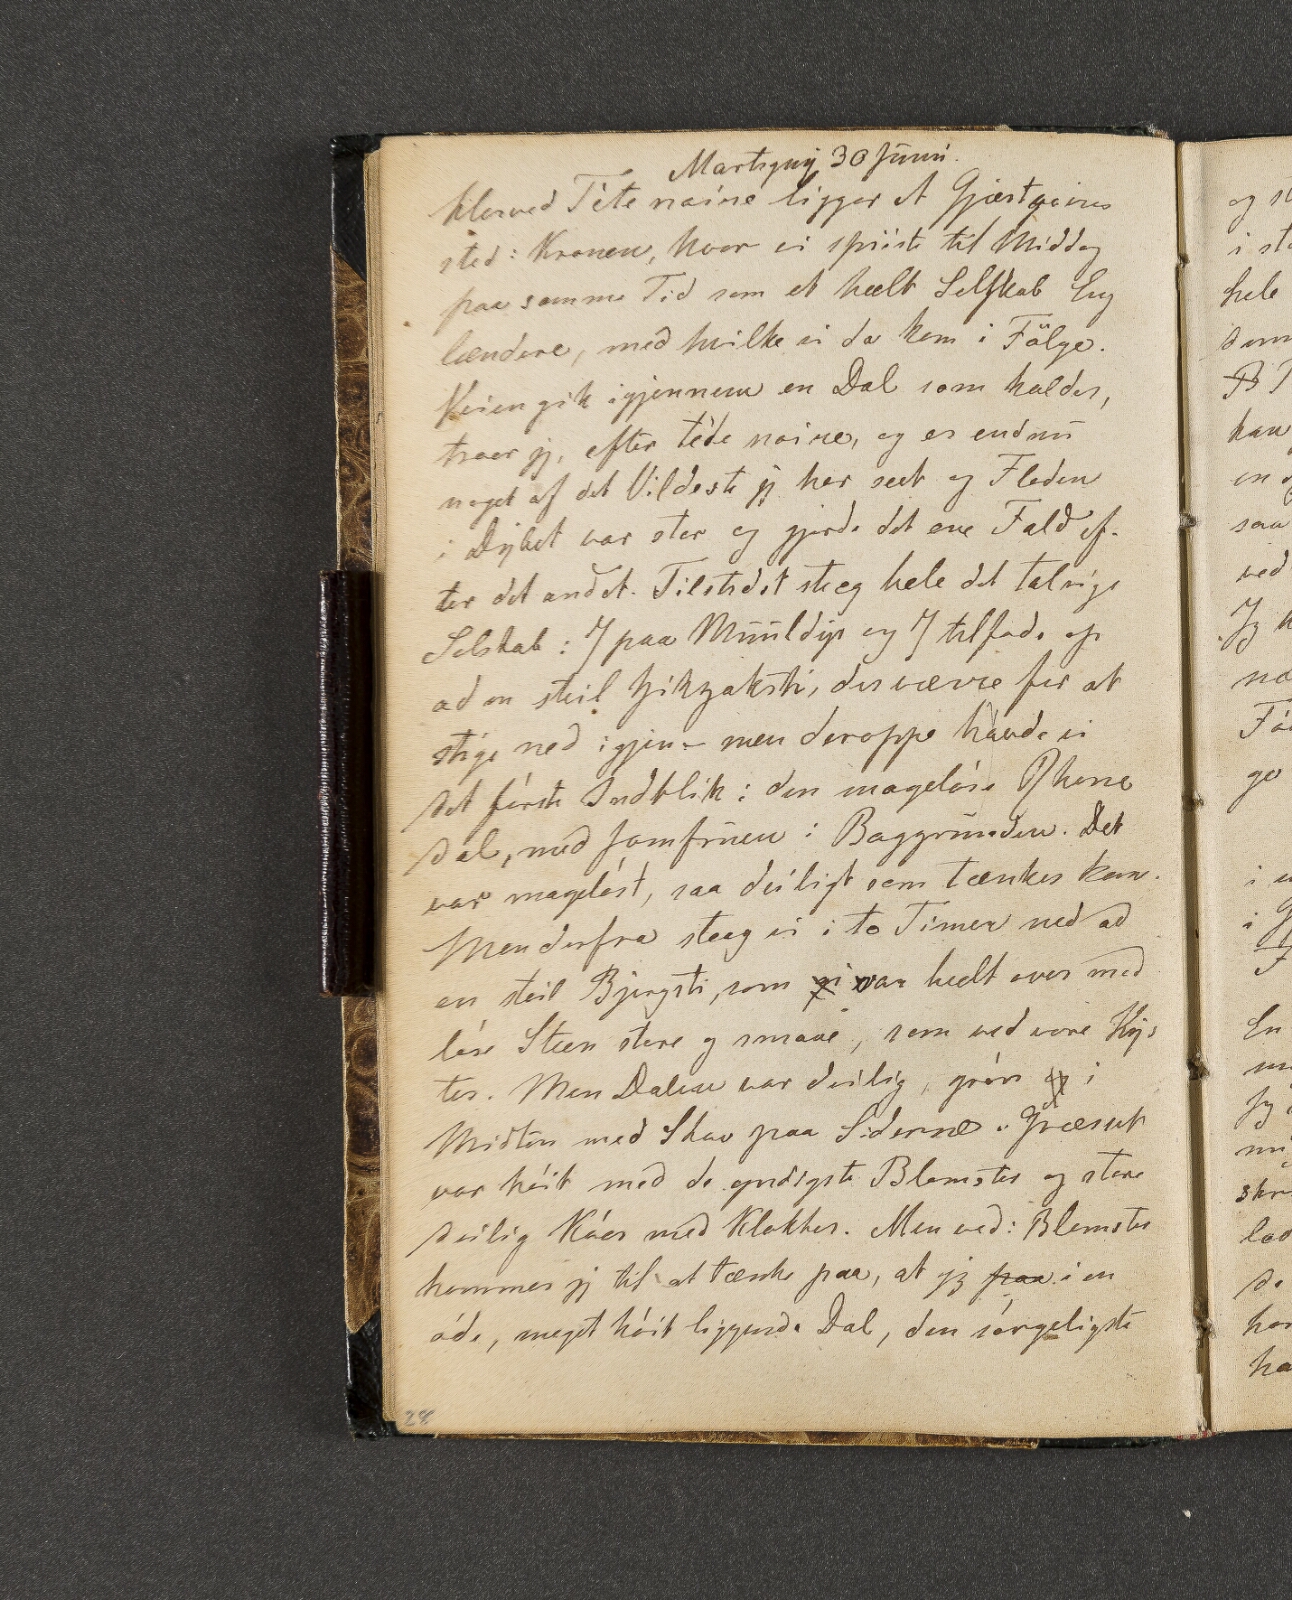 Martigny 30 Juni.
klosved Tête noire ligger et Gjæstgiver
sted: Kronen, hvor vi spiiste til Middag
paa samme Tid som et heelt Selskab Eng
lændere, med hvilke vi da kom i Fölge.
Veien gik igjennem en Dal som kaldes,
troer jg, efter tête noire, og er endnu
noget af det Vildeste jg har seet og Floden
i Dybet var stor og gjorde det ene Fald ef-
ter det andet. Tilsidst steeg hele det talrige
Selskab: 7 paa Muuldyr og 7 tilfods op
ad en steil Zikzaksti, desværre for at
stige ned igjen - men deroppe havde vi
det förste Indblik i den magelöse Rhone
dal, med Jomfruen i Baggrunden. Det
var magelöst, saa deiligt som tænkes kan.
Men derfra steeg vi i to Timer ned ad
en steil Bjergsti, som vi var heelt over med
löse Steen store og smaae, som ved vore Kys
ter. Men Dalen var deilig, grön og i
Midten med Skov paa Siderne. Græsset
var höit med de yndigste Blomster og store
deilig Köer med Klokker. Men ved: Blomster
kommer jg til at tænke paa, at jg paa i en
öde, meget höit liggende Dal, den sörgeligste
28
og st
i st
hele
kan
en
saa
ved
Jg h
ge
i
i
En
lad
ha